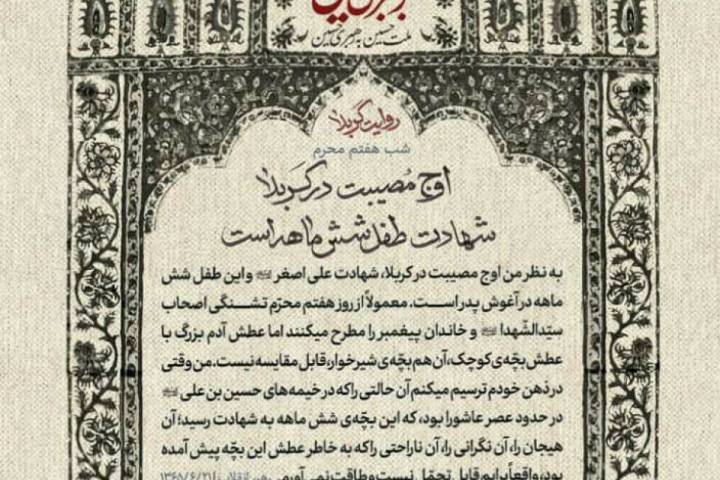 ملت حسین به رهبری حسین
روایت کربلا
شب هفتم محرم
اوج مُصیبت در کربَلا
شهادت طفل شش ماهه است
به نظر من اوج مصیبت در کربلا، شهادت علی اصغر و این طفل شش
ماهه در آغوش پدر است. معمولاً از روز هفتم محرّم تشنگی اصحاب
سیّدالشّهدا و خاندان پیغمبر را مطرح میکنند اما عطش آدم بزرگ با
عطش بچه‌ی کوچک، آن هم بچّه‌ی شیرخوار، قابل مقایسه نیست. من وقتی
در ذهن خودم ترسیم میکنم آن حالتی را که در خیمه‌های حسین بن علی
در حدود عصر عاشورا بود، که این بچّه‌ی شش ماهه به شهادت رسید؛ آن
هیجان را، آن نگرانی را، آن ناراحتی را که به خاطر عطش این بچّه پیش آمده
بود، واقعاً برایم قابل تحمّل نیست و طاقت نمی‌آورم. ۱۳۶۵/۶/۲۱